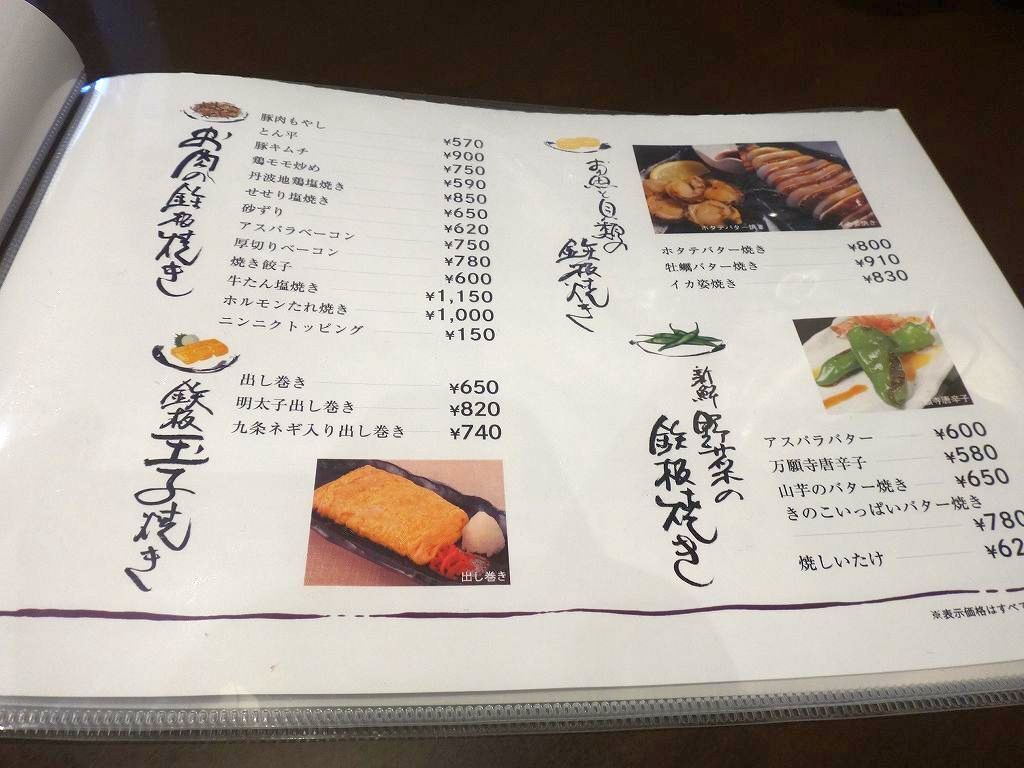 お肉の鉄板焼き
豚肉もやし ¥570
とん平 ¥900
豚キムチ ¥750
鶏モモ炒め ¥590
丹波地鶏塩焼き ¥850
せせり塩焼き ¥650
砂ずり ¥620
アスパラベーコン ¥750
厚切りベーコン ¥780
焼き餃子 ¥600
牛たん塩焼き ¥1,150
ホルモンたれ焼き ¥1,000
ニンニクトッピング ¥150
鉄板玉子焼き
出し巻き ¥650
明太子出し巻き ¥820
九条ネギ入り出し巻き ¥740
出し巻き
お魚と貝類の
鉄板焼き
ホタテバター焼き
ホタテバター焼き ¥800
牡蠣バター焼き ¥910
イカ姿焼き ¥830
新鮮野菜の
鉄板焼き
寺唐辛子
アスパラバター ¥600
万願寺唐辛子 ¥580
山芋のバター焼き ¥650
きのこいっぱいバター焼き
¥780
焼しいたけ ¥62
※表示価格はすべて